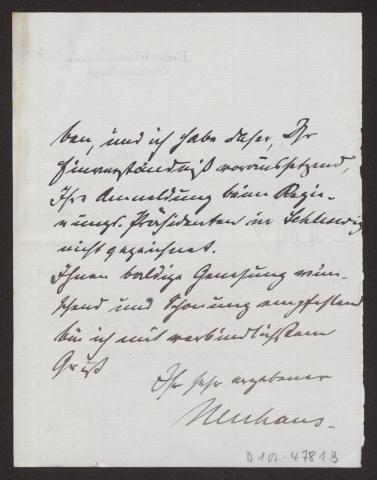 ben, und ich habe daher, Ihr
Einverständniß voraussetzend,
Ihre Anmeldung beim Regie-
rungs-Präsidenten in Schleswig
nicht gezeichnet.
Ihnen baldige Genesung wün-
schend und Schonung empfehlend
bin ich mit verbindlichstem
Gruß
Ihr sehr ergebener
Neuhaus.
D 102-4781B